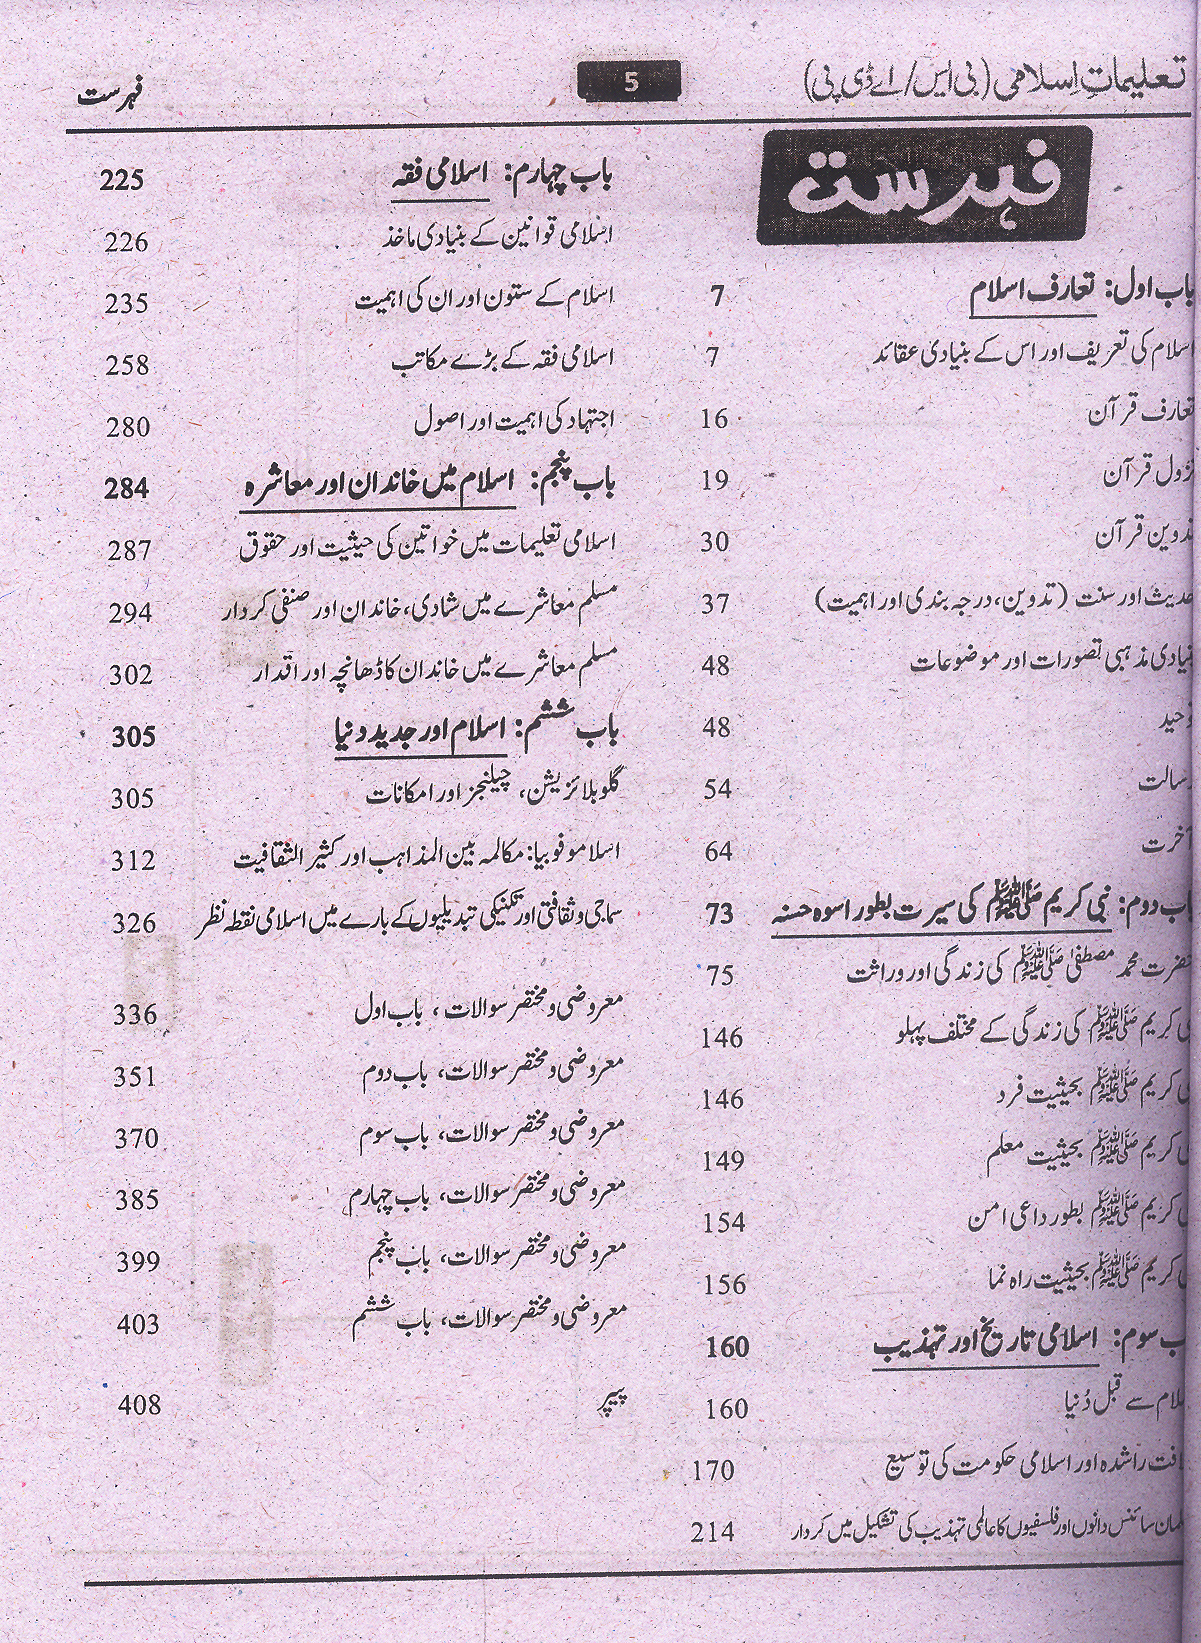 تعلیماتِ اسلامی (بی ایس/ اے ڈی پی) 5 فہرست
فہرست
باب اول: تعارف اسلام 7
اسلام کی تعریف اور اس کے بنیادی عقائد 7
تعارف قرآن 16
نزول قرآن 19
تدوین قرآن 30
حدیث اور سنت (تدوین، درجہ بندی اور اہمیت) 37
بنیادی مذہبی تصورات اور موضوعات 48
توحید 48
رسالت 54
آخرت 64
باب دوم: نبی کریم ﷺ کی سیرت بطور اسوہ حسنہ 73
حضرت محمد مصطفیٰ ﷺ کی زندگی اور وراثت 75
نبی کریم ﷺ کی زندگی کے مختلف پہلو 146
نبی کریم ﷺ بحیثیت فرد 146
نبی کریم ﷺ بحیثیت معلم 149
نبی کریم ﷺ بطور داعی امن 154
نبی کریم ﷺ بحیثیت راہ نما 156
باب سوم: اسلامی تاریخ اور تہذیب 160
اسلام سے قبل دُنیا 160
خلافت راشدہ اور اسلامی حکومت کی توسیع 170
مسلمان سائنس دانوں اور فلسفیوں کا عالمی تہذیب کی تشکیل میں کردار 214
باب چہارم: اسلامی فقہ 225
اسلامی قوانین کے بنیادی ماخذ 226
اسلام کے ستون اور ان کی اہمیت 235
اسلامی فقہ کے بڑے مکاتب 258
اجتہاد کی اہمیت اور اصول 280
باب پنجم: اسلام میں خاندان اور معاشرہ 284
اسلامی تعلیمات میں خواتین کی حیثیت اور حقوق 287
مسلم معاشرے میں شادی، خاندان اور صنفی کردار 294
مسلم معاشرے میں خاندان کا ڈھانچہ اور اقدار 302
باب ششم: اسلام اور جدید دنیا 305
گلوبلائزیشن، چیلنجز اور امکانات 305
اسلاموفوبیا: مکالمہ بین المذاہب اور کثیر الثقافیت 312
سماجی و ثقافتی اور تکنیکی تبدیلیوں کے بارے میں اسلامی نقطہ نظر 326
معروضی و مختصر سوالات، باب اول 336
معروضی و مختصر سوالات، باب دوم 351
معروضی و مختصر سوالات، باب سوم 370
معروضی و مختصر سوالات، باب چہارم 385
معروضی و مختصر سوالات، باب پنجم 399
معروضی و مختصر سوالات، باب ششم 403
پیپر 408